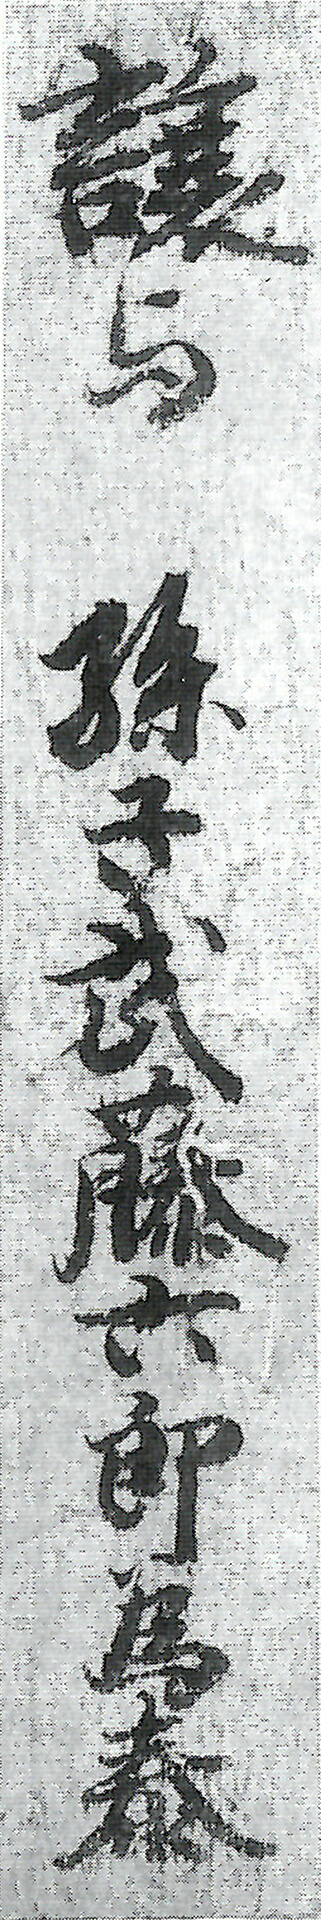 譲与　孫子武藤六郎為泰